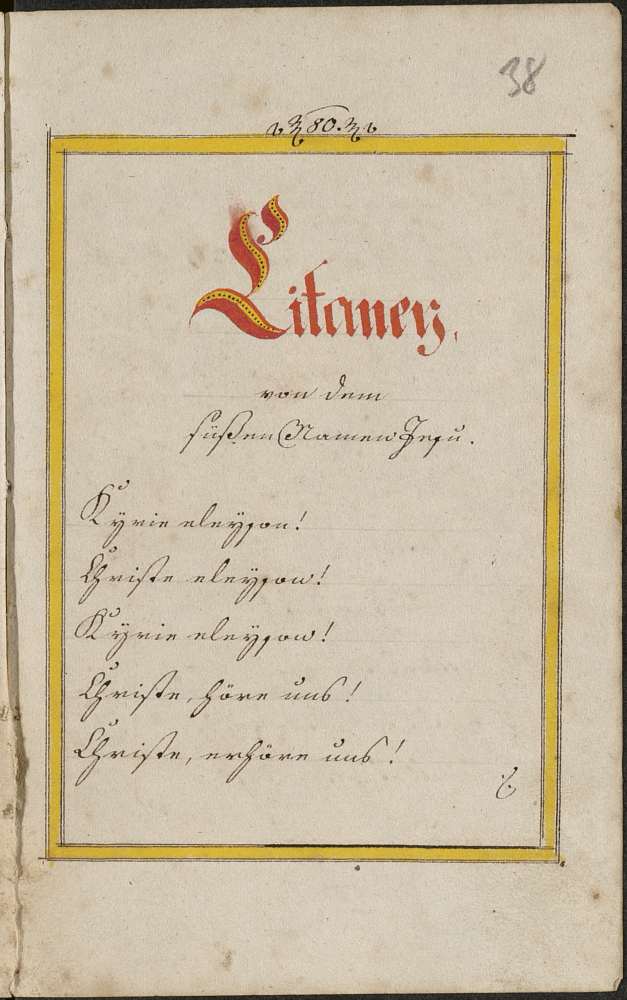 38
80.
Litaney,
von dem
süßen Namen Jesu.
Kyrie eleyson!
Christe eleyson!
Kyrie eleyson!
Christe, höre uns!
Christe, erhöre uns!